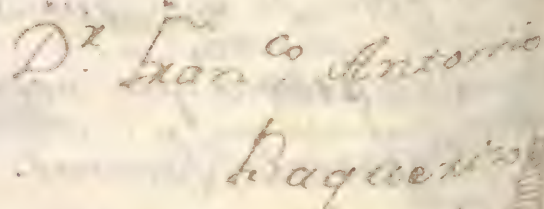 D.r Fran.co Antonio
Baquerizo